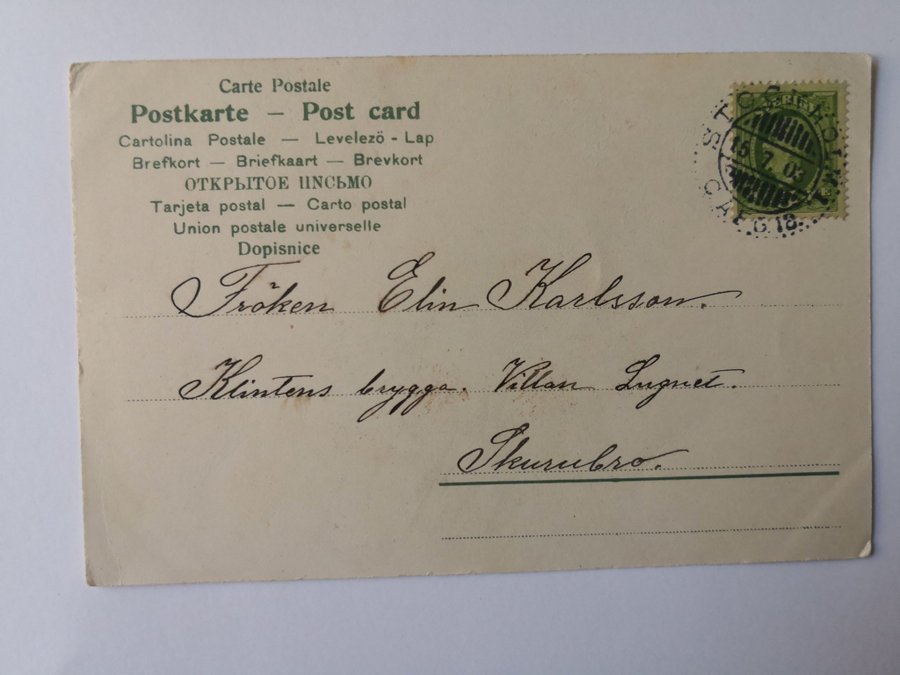 Carte Postale
Postkarte — Post card
Cartolina Postale — Levelező-Lap
Brefkort — Briefkaart — Brevkort
ОТКРЫТОЕ ПИСЬМО
Tarjeta postal — Carto postal
Union postale universelle
Dopisnice
STOCKHOLM 1
15 7 03
AFG. 13
Fröken Elin Karlsson.
Klintens brygga. Villan Lugnet.
Skurubro.